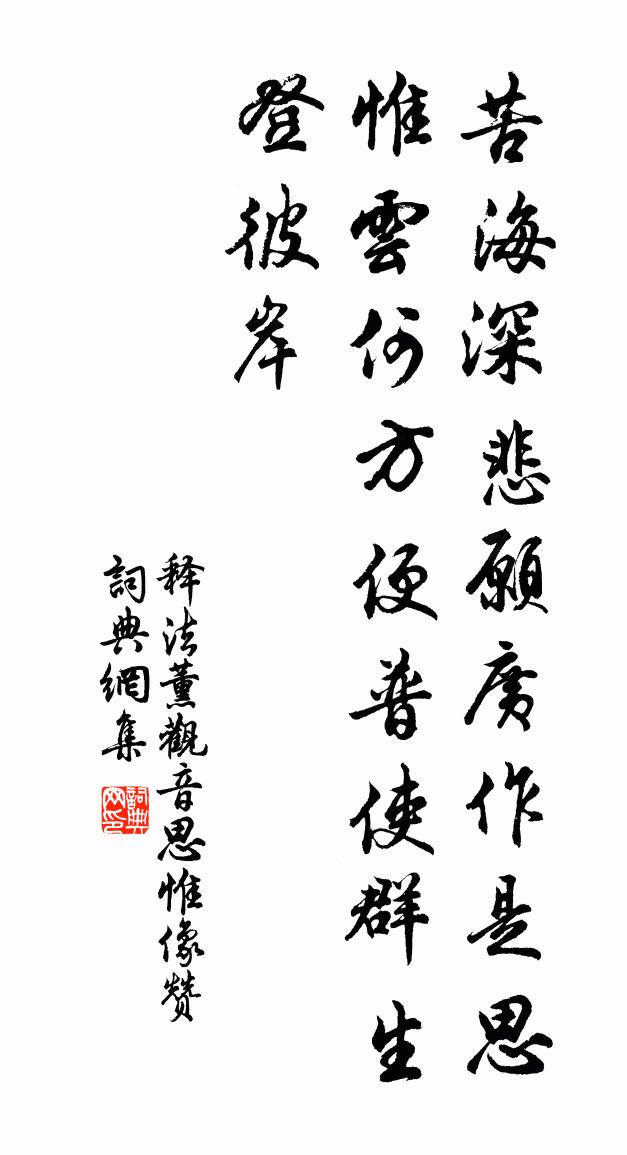 苦海深悲願廣作是思
惟雲何方便普使群生
登彼岸
释法薰觀音思惟像赞
詞典網集
詞典网印